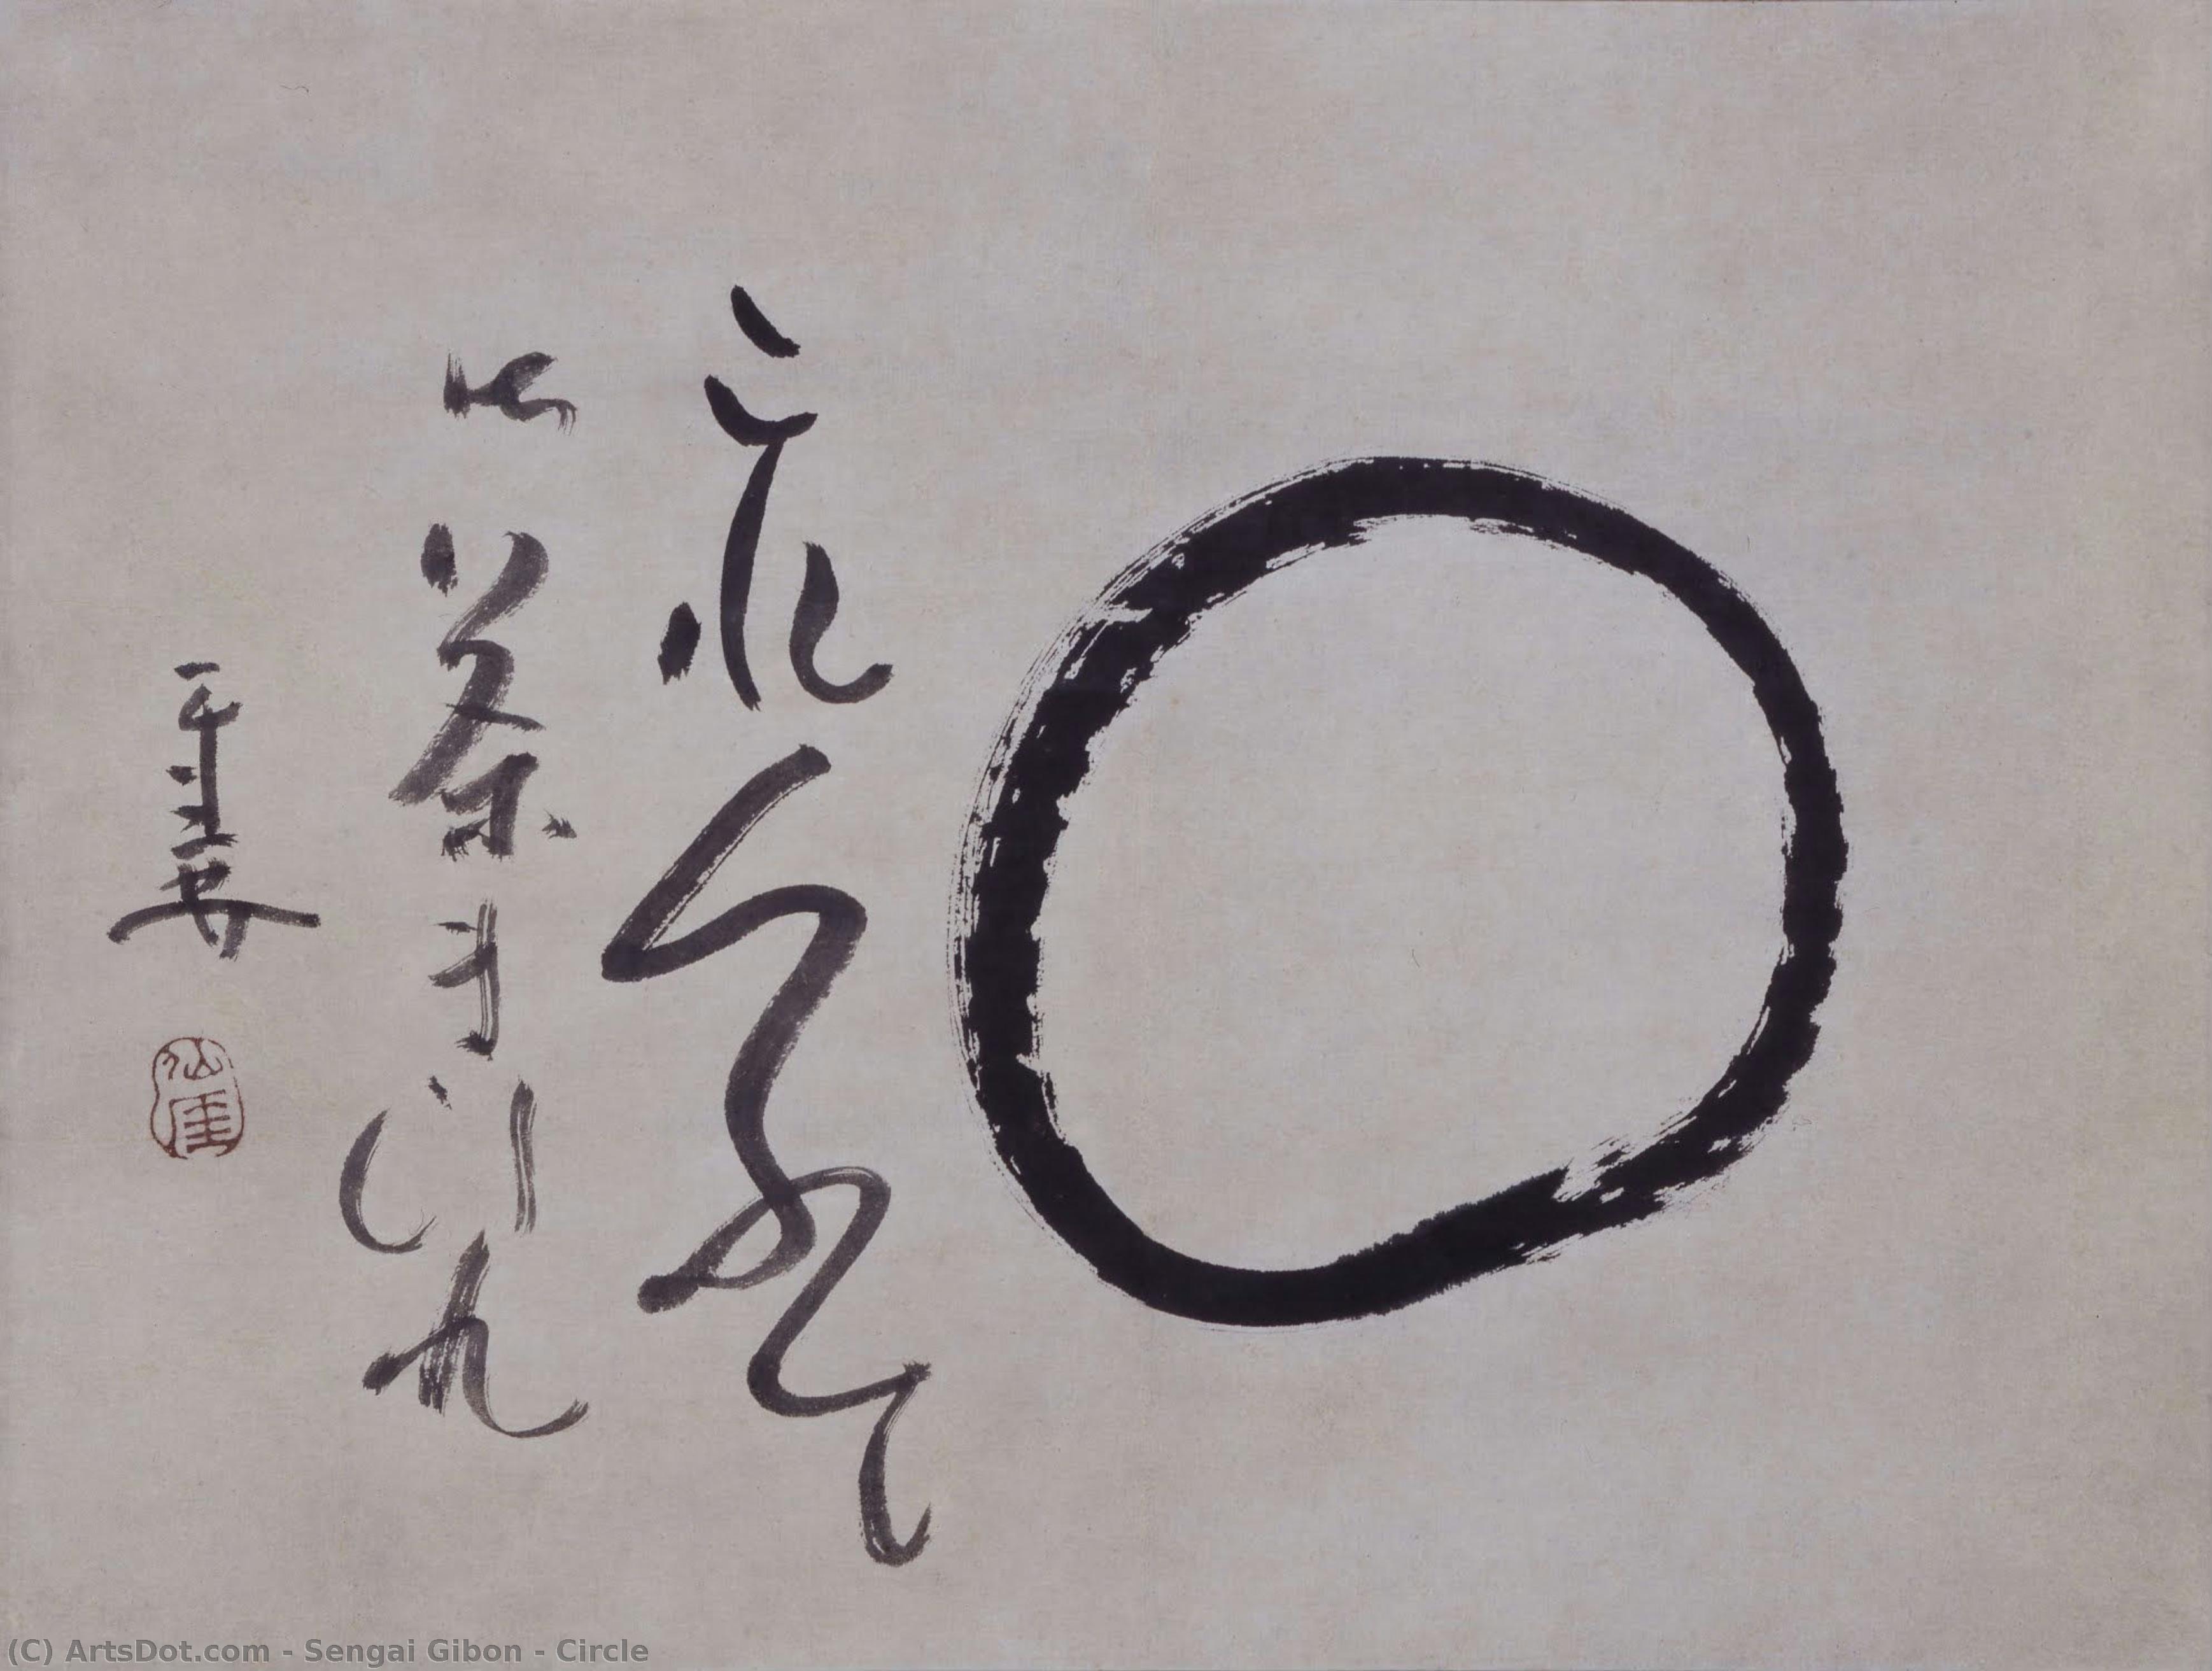 これくふて
御茶まいれ
仙厓
(C) ArtsDot.com - Sengai Gibon - Circle